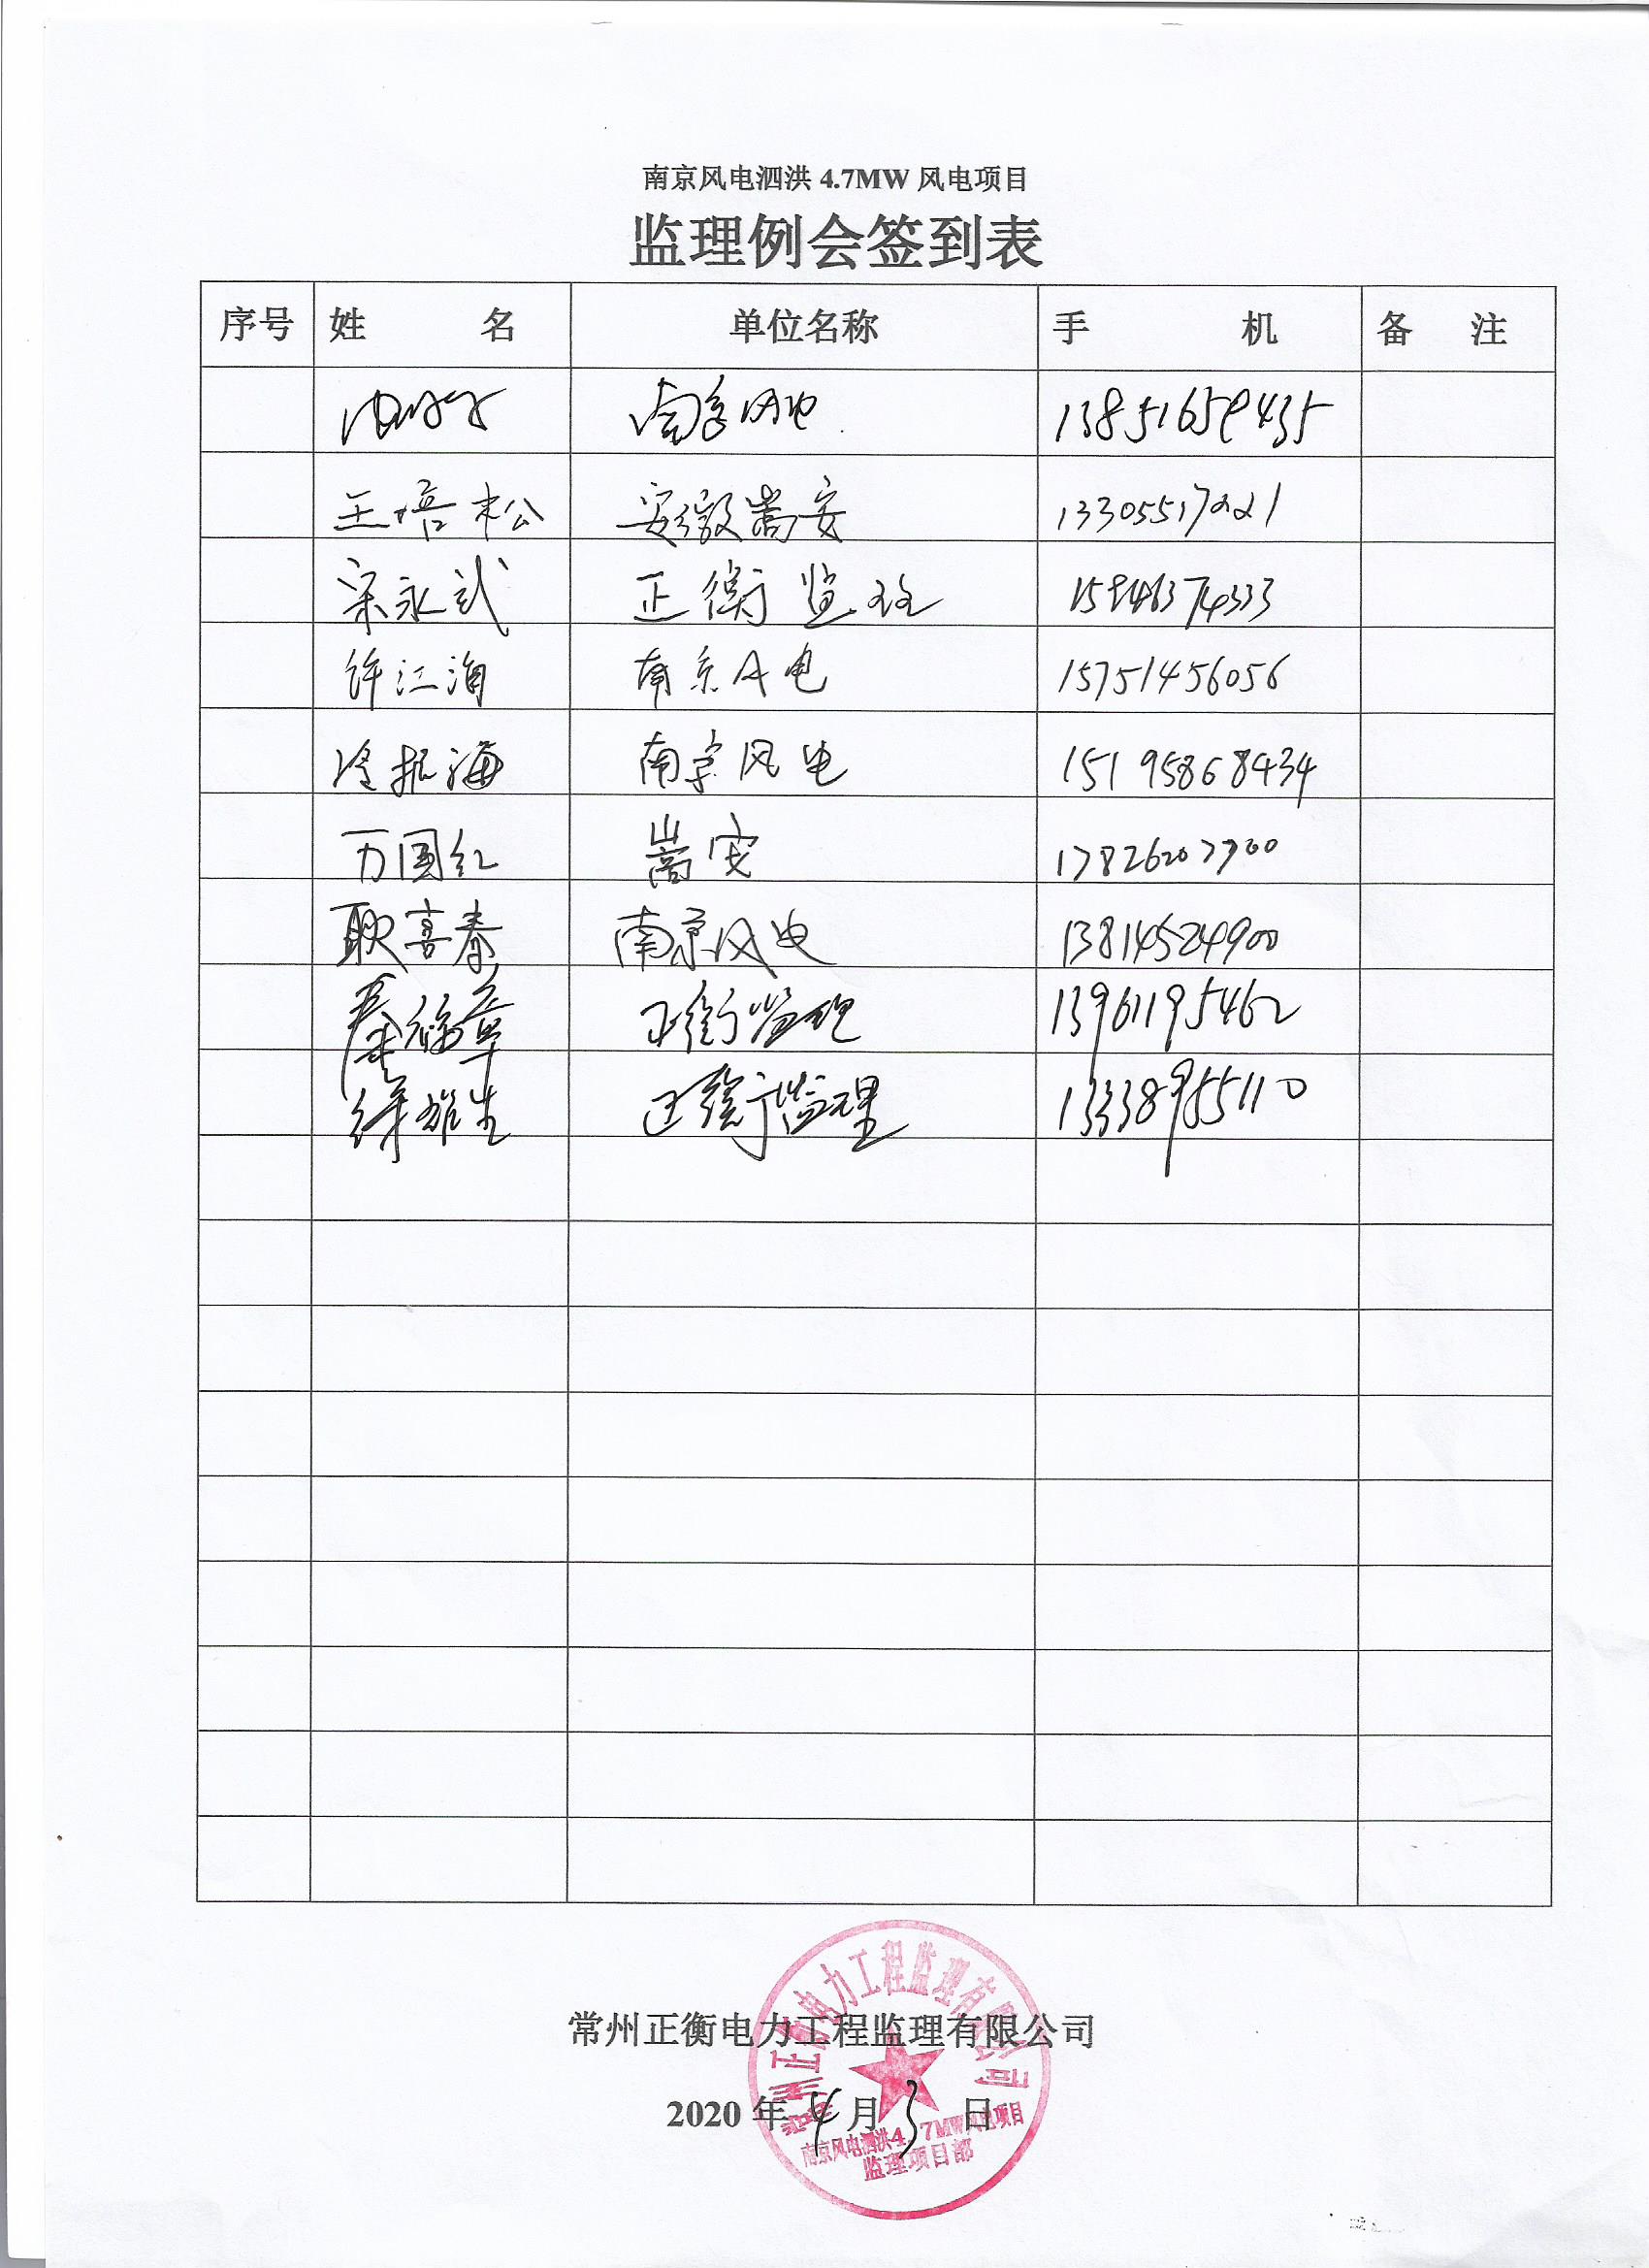 南京风电泗洪 4.7MW 风电项目
监理例会签到表
序号 姓 名 单位名称 手 机 备 注
南京风电 13851659435
王培松 安徽嵩安 13305517221
宋永武 正衡监理 15846374333
许江海 南京风电 15751456056
冷振海 南京风电 15195868434
万国红 嵩安 17826207700
耿喜春 南京风电 13814524900
秦福章 正衡监理 13961195462
徐雄生 正衡监理 13338955110
常州正衡电力工程监理有限公司
2020 年 4 月 3 日
常州正衡电力工程监理有限公司
南京风电泗洪4.7MW风电项目
监理项目部